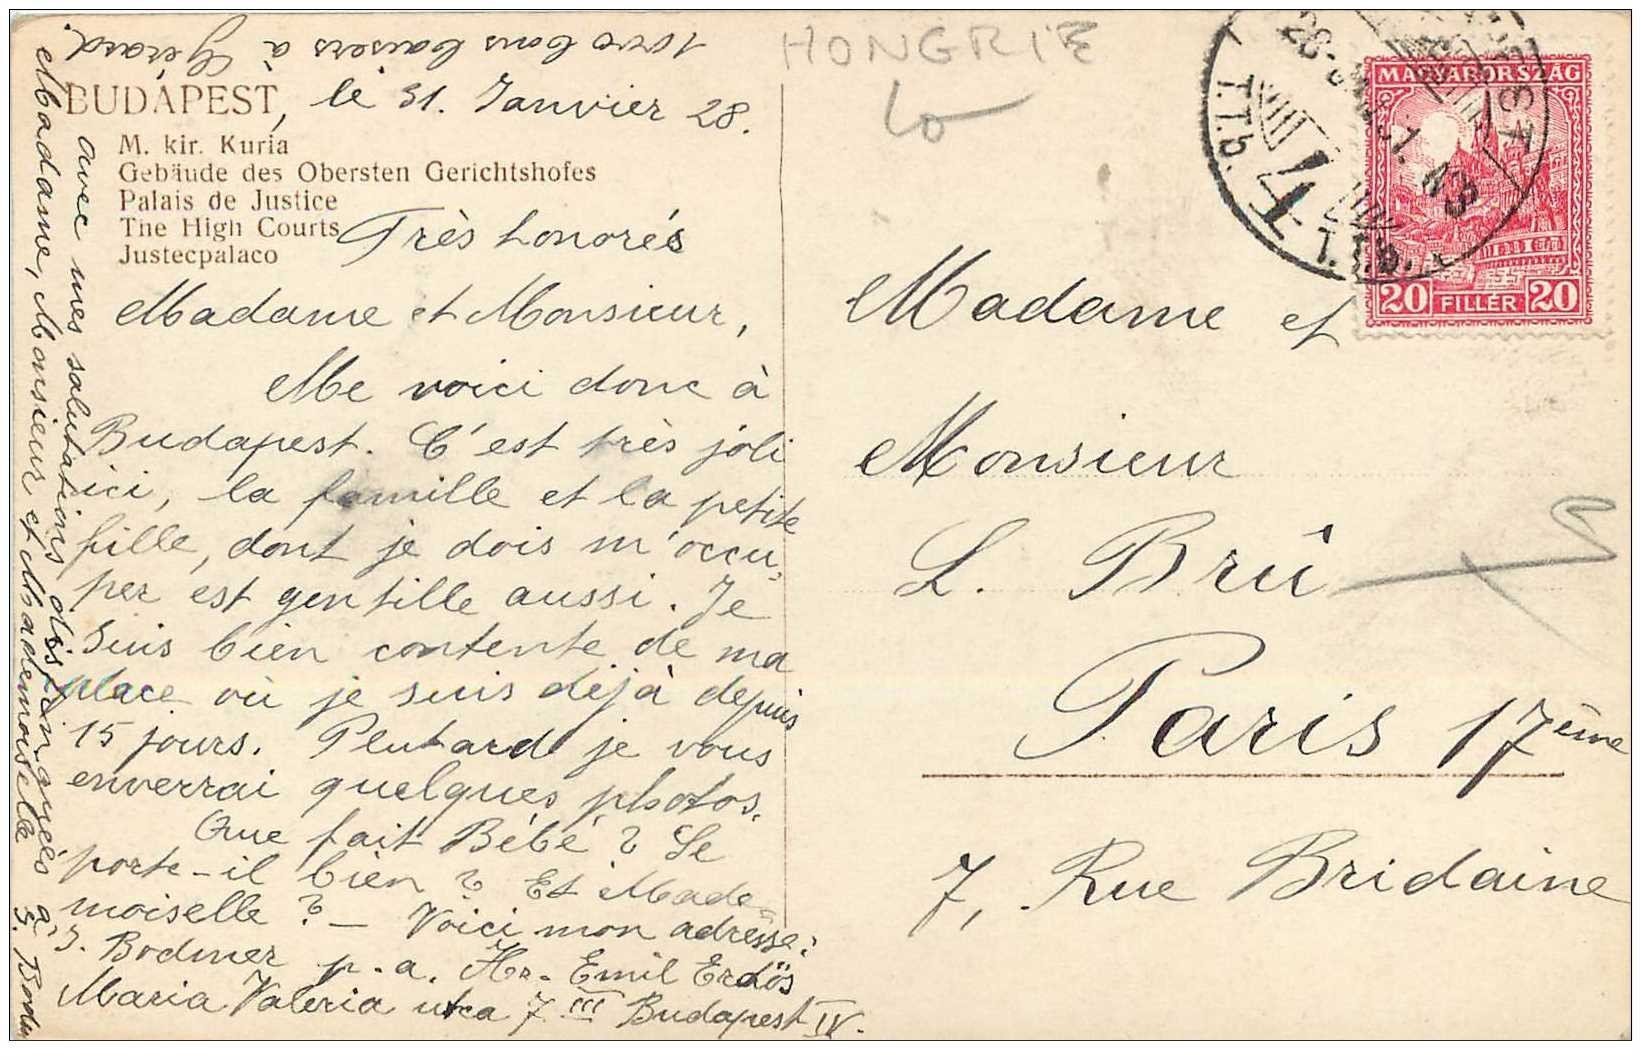 1000 bons baisers à Gérard.
BUDAPEST, le 31. Janvier 28.
M. kir. Kuria
Gebäude des Obersten Gerichtshofes
Palais de Justice
The High Courts
Justecpalaco
Très honorés
Madame et Monsieur,
Me voici donc à
Budapest. C'est très joli
ici, la famille et la petite
fille, dont je dois m'occu-
per est gentille aussi. Je
suis bien contente de ma
place où je suis déjà depuis
15 jours. Plutard je vous
enverrai quelques photos.
Que fait Bébé? Se
porte-il bien? Et Made-
moiselle? — Voici mon adresse:
S. Bodmer p. a. Hr. Emil Erdös
Maria Valeria utca 7 III Budapest IV.
avec mes salutations distinguées à
Madame, Monsieur et Mademoiselle S. Bodm
HONGRIE
MAGYARORSZÁG
20 FILLÉR 20
T.T.b.
T.T.b.
4
Madame et
Monsieur
L. Brû
Paris 17ème
7, Rue Bridaine